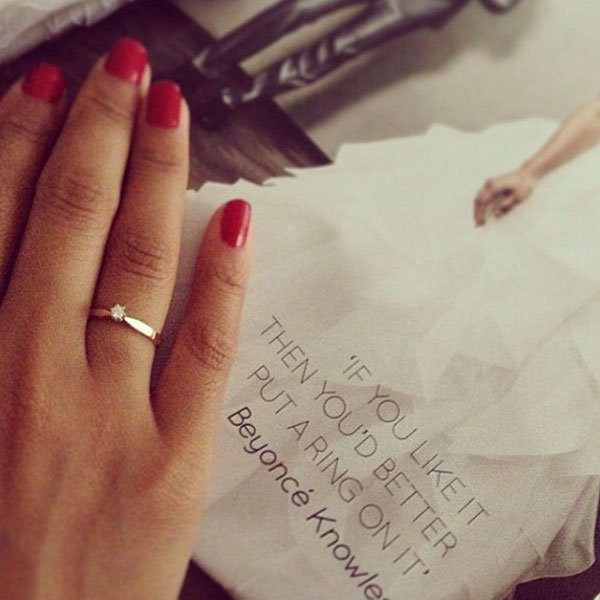 'IF YOU LIKE IT
THEN YOU'D BETTER
PUT A RING ON IT'
Beyoncé Knowles